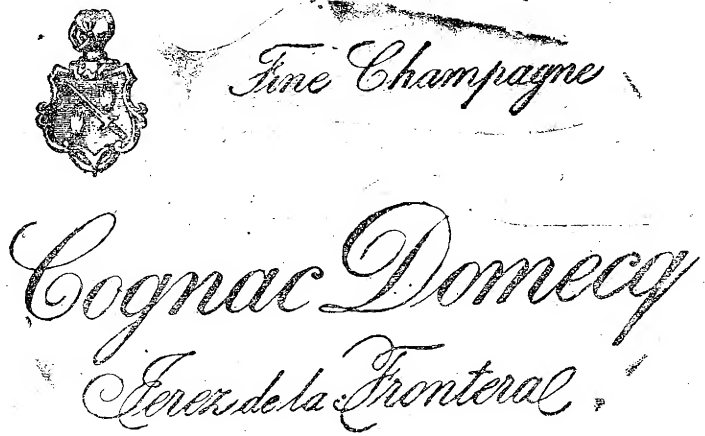 Fine Champagne
Cognac Domecq
Jerez de la Frontera.